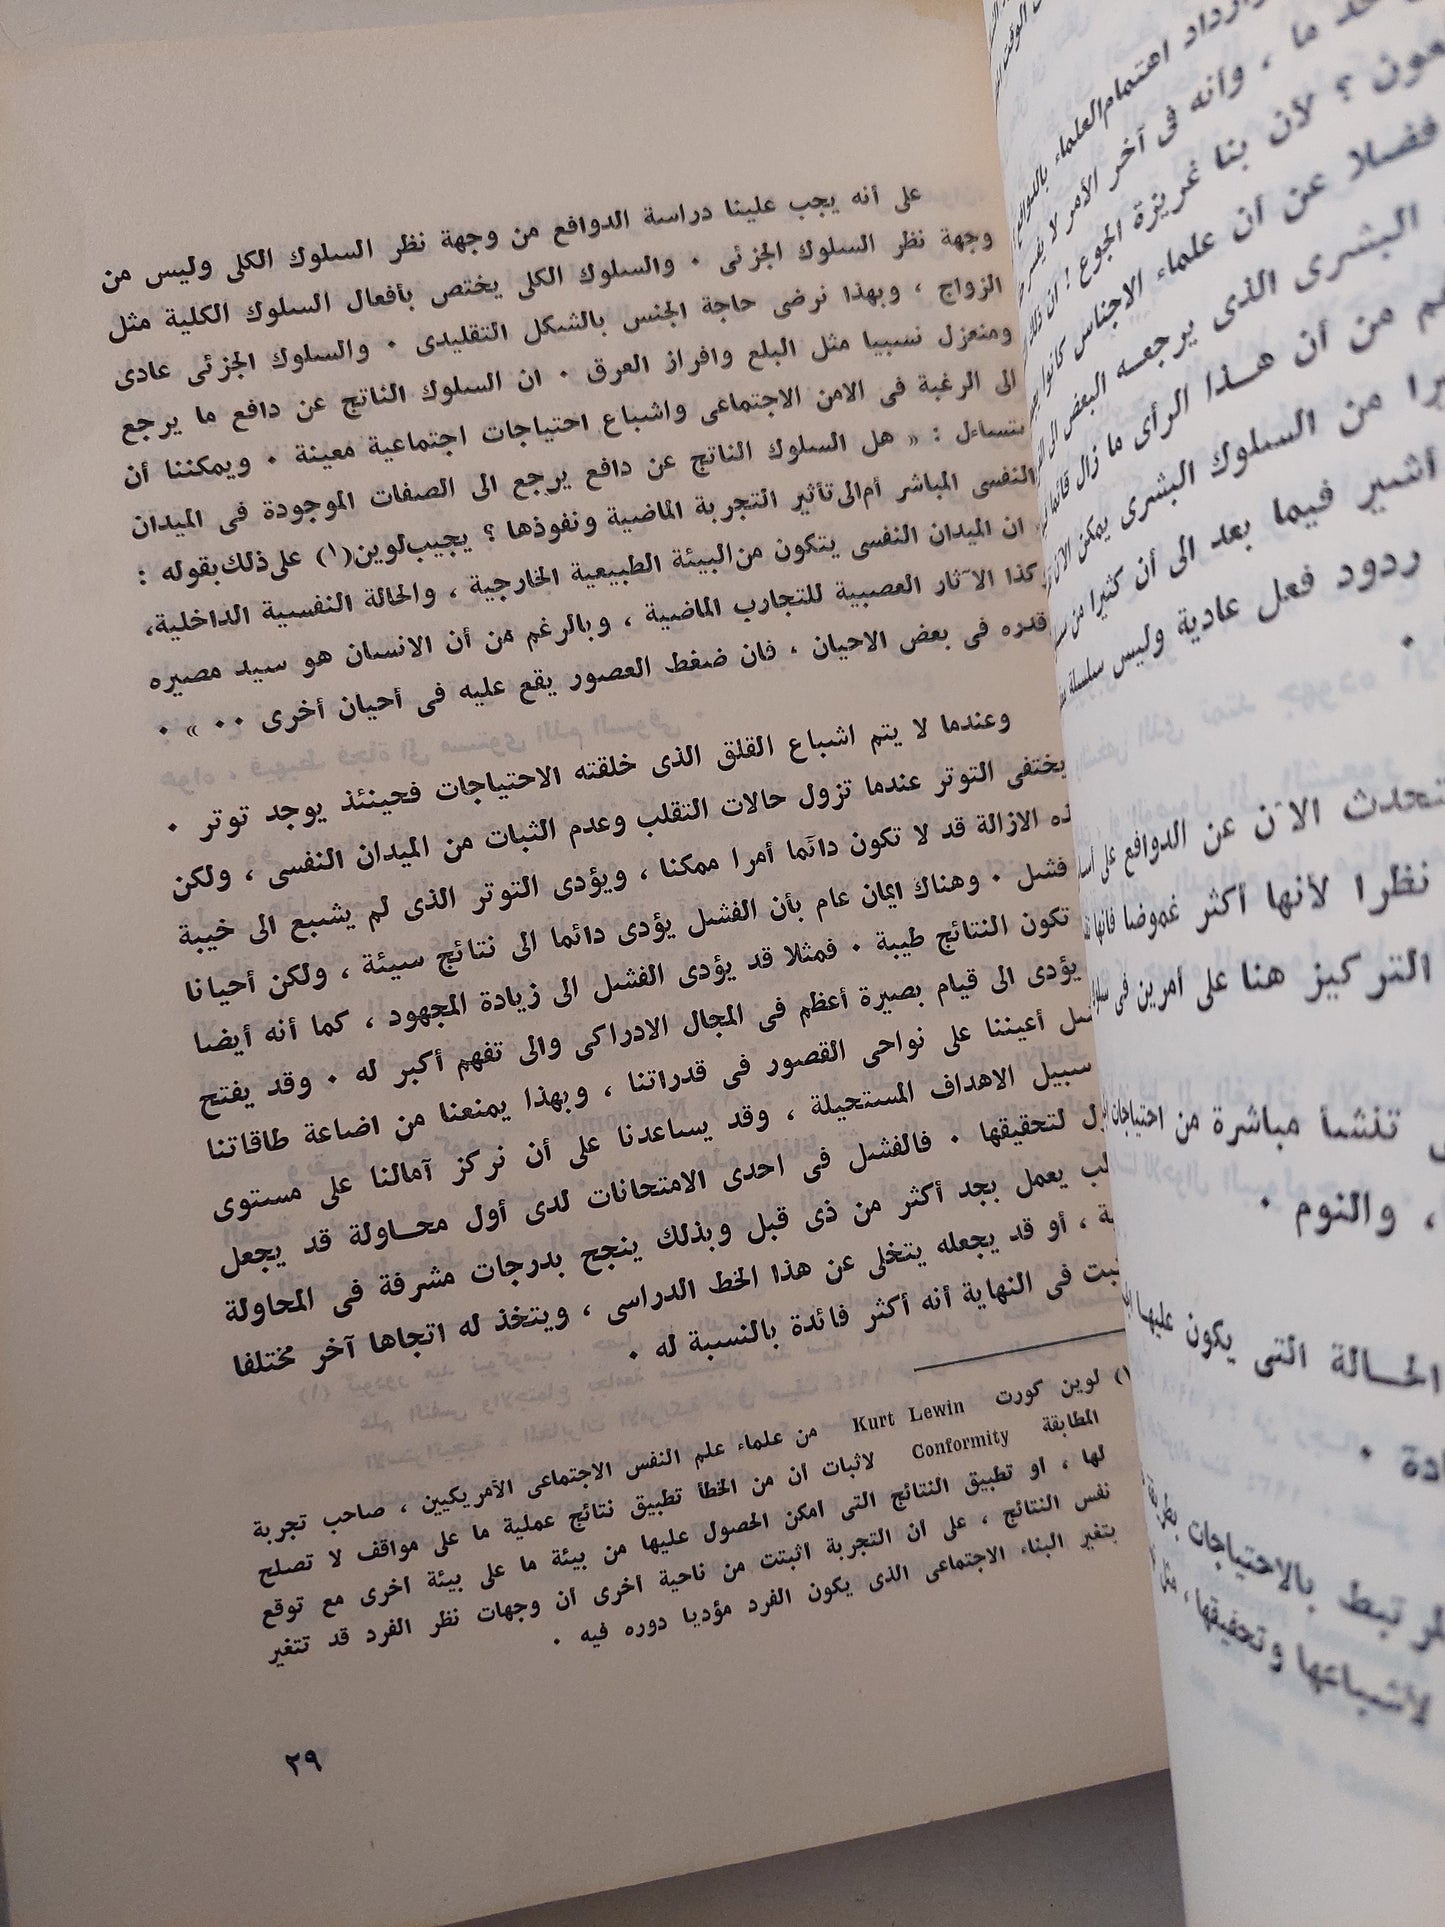 على أنه يجب علينا دراسة الدوافع من وجهة نظر السلوك الكلى وليس من
وجهة نظر السلوك الجزئى . والسلوك الكلى يختص بأفعال السلوك الكلية مثل
الزواج ، وبهذا نرضى حاجة الجنس بالشكل التقليدى . والسلوك الجزئى عادى
ومنعزل نسبيا مثل البلع وافراز العرق . ان السلوك الناتج عن دافع ما يرجع
الى الرغبة فى الامن الاجتماعى واشباع احتياجات اجتماعية معينة . ويمكننا أن
نتساءل : « هل السلوك الناتج عن دافع يرجع الى الصفات الموجودة فى الميدان
النفسى المباشر أم الى تأثير التجربة الماضية ونفوذها ؟ يجيب لوين (١) على ذلك بقوله :
ان الميدان النفسى يتكون من البيئة الطبيعية الخارجية ، والحالة النفسية الداخلية،
كذا الآثار العصبية للتجارب الماضية ، وبالرغم من أن الانسان هو سيد مصيره
قدره فى بعض الاحيان ، فان ضغط العصور يقع عليه فى أحيان أخرى . . » .
وعندما لا يتم اشباع القلق الذى خلقته الاحتياجات فحينئذ يوجد توتر .
يختفى التوتر عندما تزول حالات التقلب وعدم الثبات من الميدان النفسى ، ولكن
الازالة قد لا تكون دائما أمرا ممكنا ، ويؤدى التوتر الذى لم يشبع الى خيبة
فشل . وهناك ايمان عام بأن الفشل يؤدى دائما الى نتائج سيئة ، ولكن أحيانا
تكون النتائج طيبة . فمثلا قد يؤدى الفشل الى زيادة المجهود ، كما أنه أيضا
يؤدى الى قيام بصيرة أعظم فى المجال الادراكى والى تفهم أكبر له . وقد يفتح
أعيننا على نواحى القصور فى قدراتنا ، وبهذا يمنعنا من اضاعة طاقاتنا
سبيل الاهداف المستحيلة ، وقد يساعدنا على أن نركز آمالنا على مستوى
لتحقيقها . فالفشل فى احدى الامتحانات لدى أول محاولة قد يجعل
يعمل بجد أكثر من ذى قبل وبذلك ينجح بدرجات مشرفة فى المحاولة
، أو قد يجعله يتخلى عن هذا الخط الدراسى ، ويتخذ له اتجاها آخر مختلفا
فى النهاية أنه أكثر فائدة بالنسبة له .
١) لوين كورت Kurt Lewin من علماء علم النفس الاجتماعى الأمريكيين ، صاحب تجربة
المطابقة Conformity لاثبات أن من الخطأ تطبيق نتائج عملية ما على مواقف لا تصلح
لها ، أو تطبيق النتائج التى أمكن الحصول عليها من بيئة ما على بيئة أخرى مع توقع
نفس النتائج ، على أن التجربة أثبتت من ناحية أخرى أن وجهات نظر الفرد قد تتغير
بتغير البناء الاجتماعى الذى يكون الفرد مؤديا دوره فيه .
٢٩
ازداد اهتمام العلماء
ما ، وأنه فى آخر الأمر لا
؟ لأن بنا غريزة الجوع ! ان
فضلا عن أن علماء الاجناس كانوا
البشرى الذى يرجعه البعض الى
من أن هذا الرأى ما زال قائما
من السلوك البشرى يمكن الآن
أشير فيما بعد الى أن كثيرا من
ردود فعل عادية وليس سلسلة
.
الآن عن الدوافع على
نظرا لأنها أكثر غموضا فانها
التركيز هنا على أمرين فى
تنشأ مباشرة من احتياجات
، والنوم .
الحالة التى يكون عليها
.
بالاحتياجات
لاشباعها وتحقيقها ،